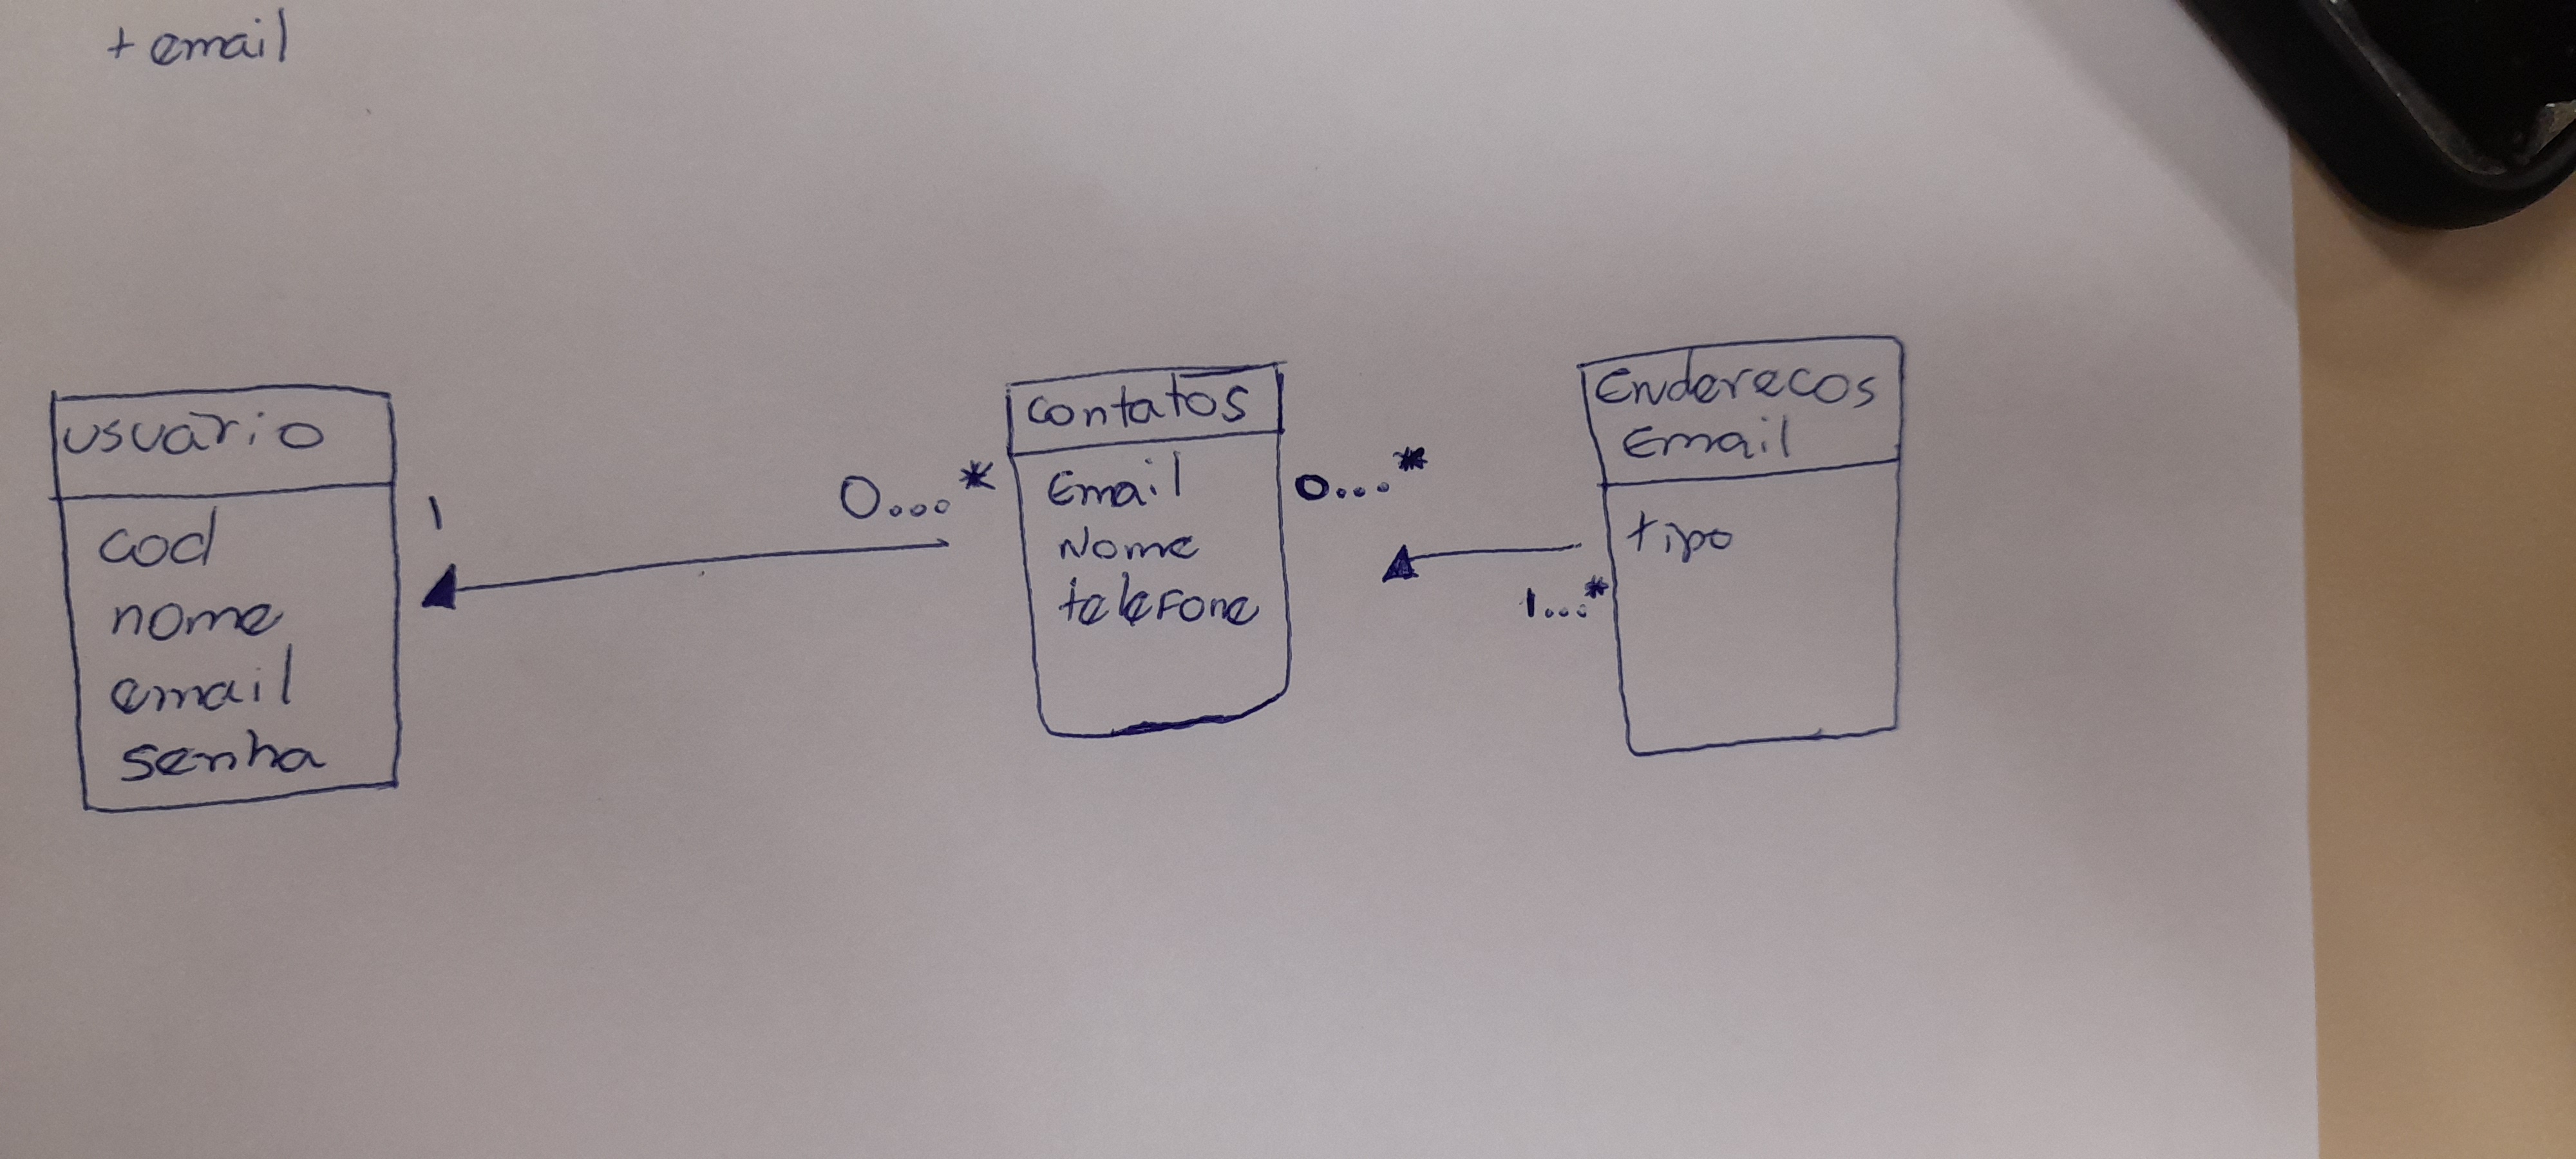 + email
usuário
cod
nome
email
senha
1
0...*
contatos
Email
Nome
telefone
0...*
1...*
Enderecos
Email
tipo